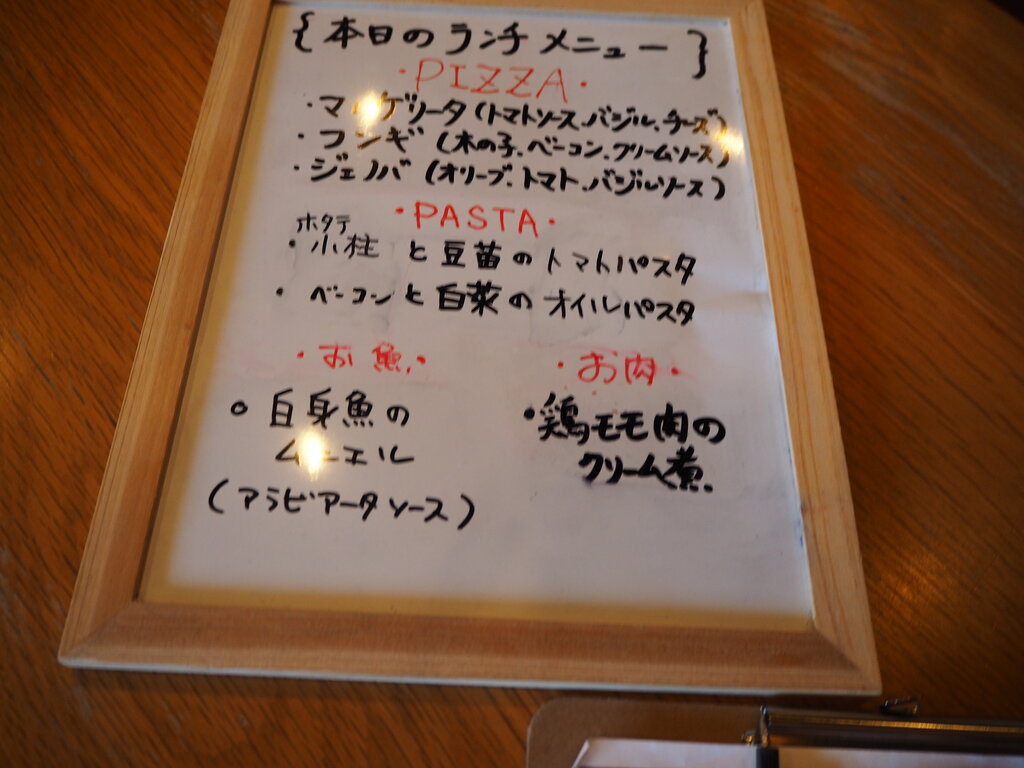 {本日のランチメニュー}
・PIZZA・
・マルゲリータ(トマトソース、バジル、チーズ)
・フンギ(木の子、ベーコン、クリームソース)
・ジェノバ(オリーブ、トマト、バジルソース)
・PASTA・
ホタテ
・小柱と豆苗のトマトパスタ
・ベーコンと白菜のオイルパスタ
・お魚・
○白身魚の
ムニエル
(アラビアータソース)
・お肉・
・鶏モモ肉の
クリーム煮